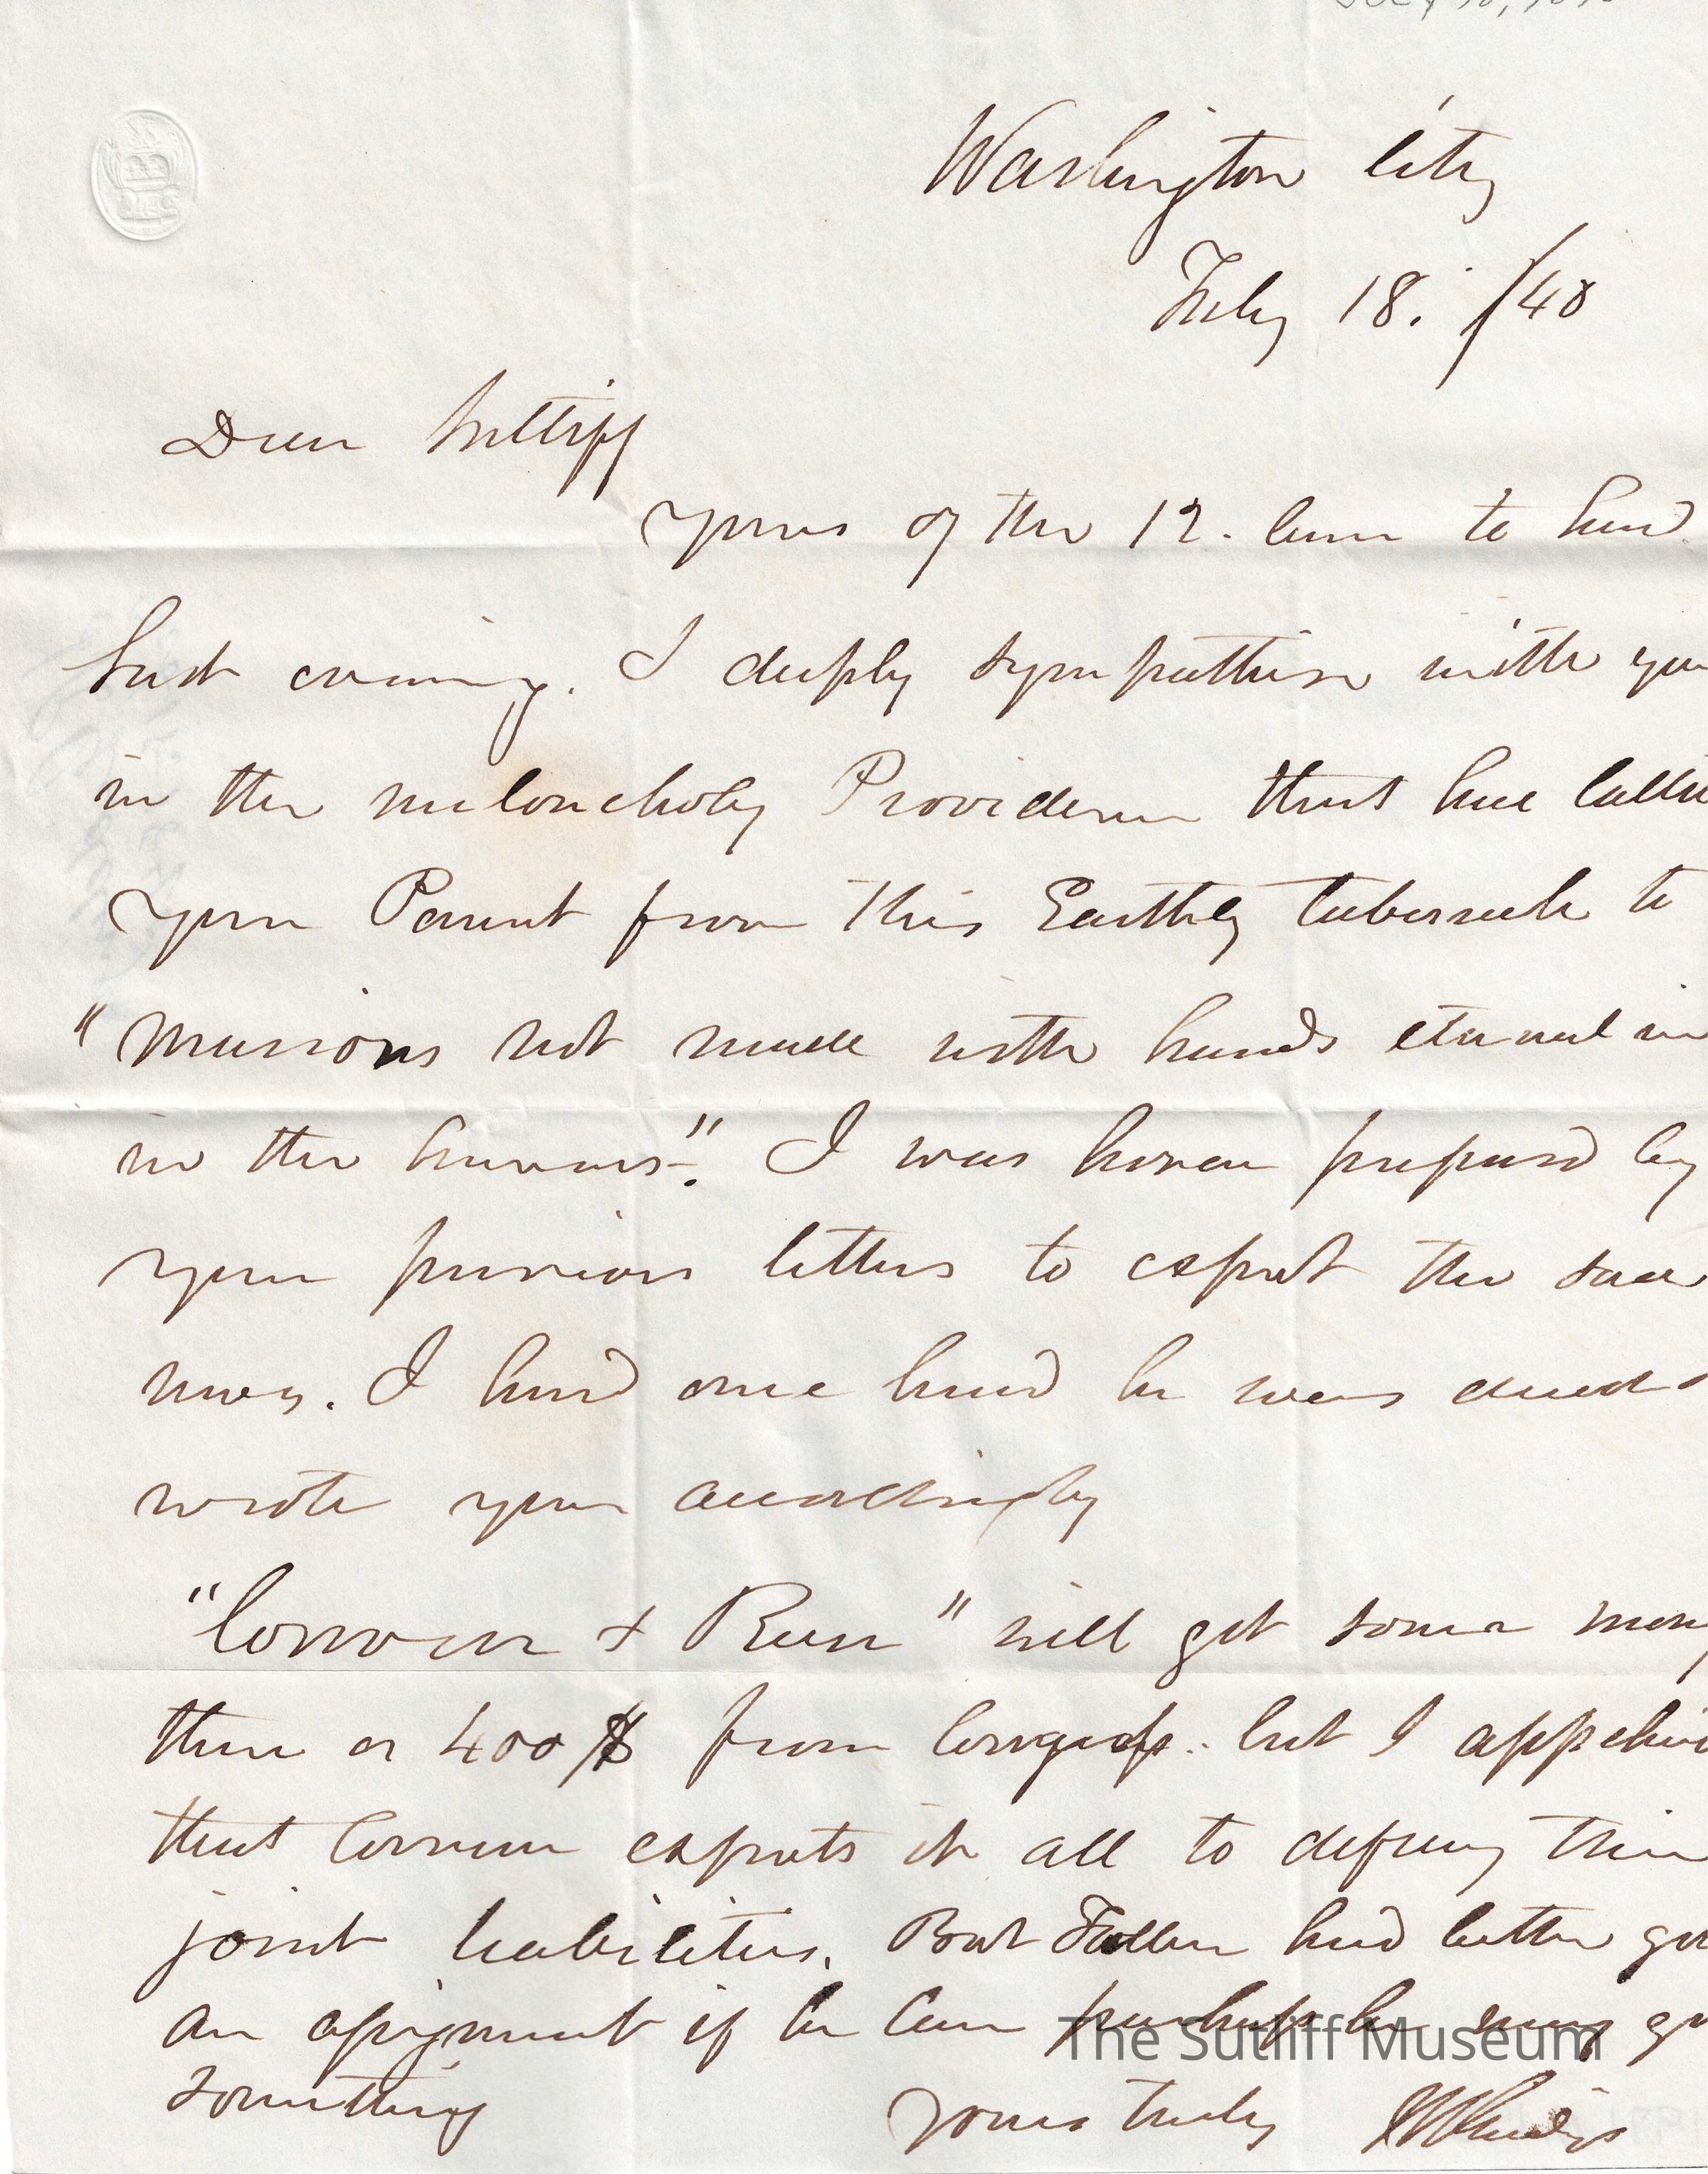 Washington City
July 18. /40
Dear Suttiff
yours of the 12. came to hand
last evening. I deeply sympathise with you
in the meloncholy Providence that has called
your Parent from this Earthly tabernacle to
"mansions not made with hands eternal in
in the heavens". I was however prepared by
your previous letters to expect the sad
news. I had once heard he was dead &
wrote you accordingly
" & Reese" will get some money
three or 400$ from Congress. but I apprehend
that expects it all to defray their
joint liabilities. But Fuller had better get
an assignment if he can perhaps he may get
something
yours truly JR Giddings
The Sutliff Museum